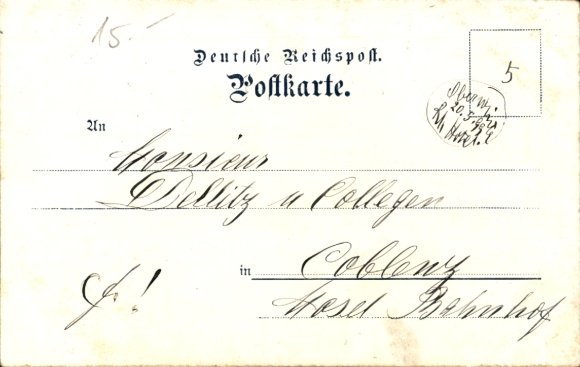 15.-
Deutsche Reichspost.
Postkarte.
5
20.5.
An
Monsieur
Dellitz u Collegen
in Coblenz
Mosel Bahnhof